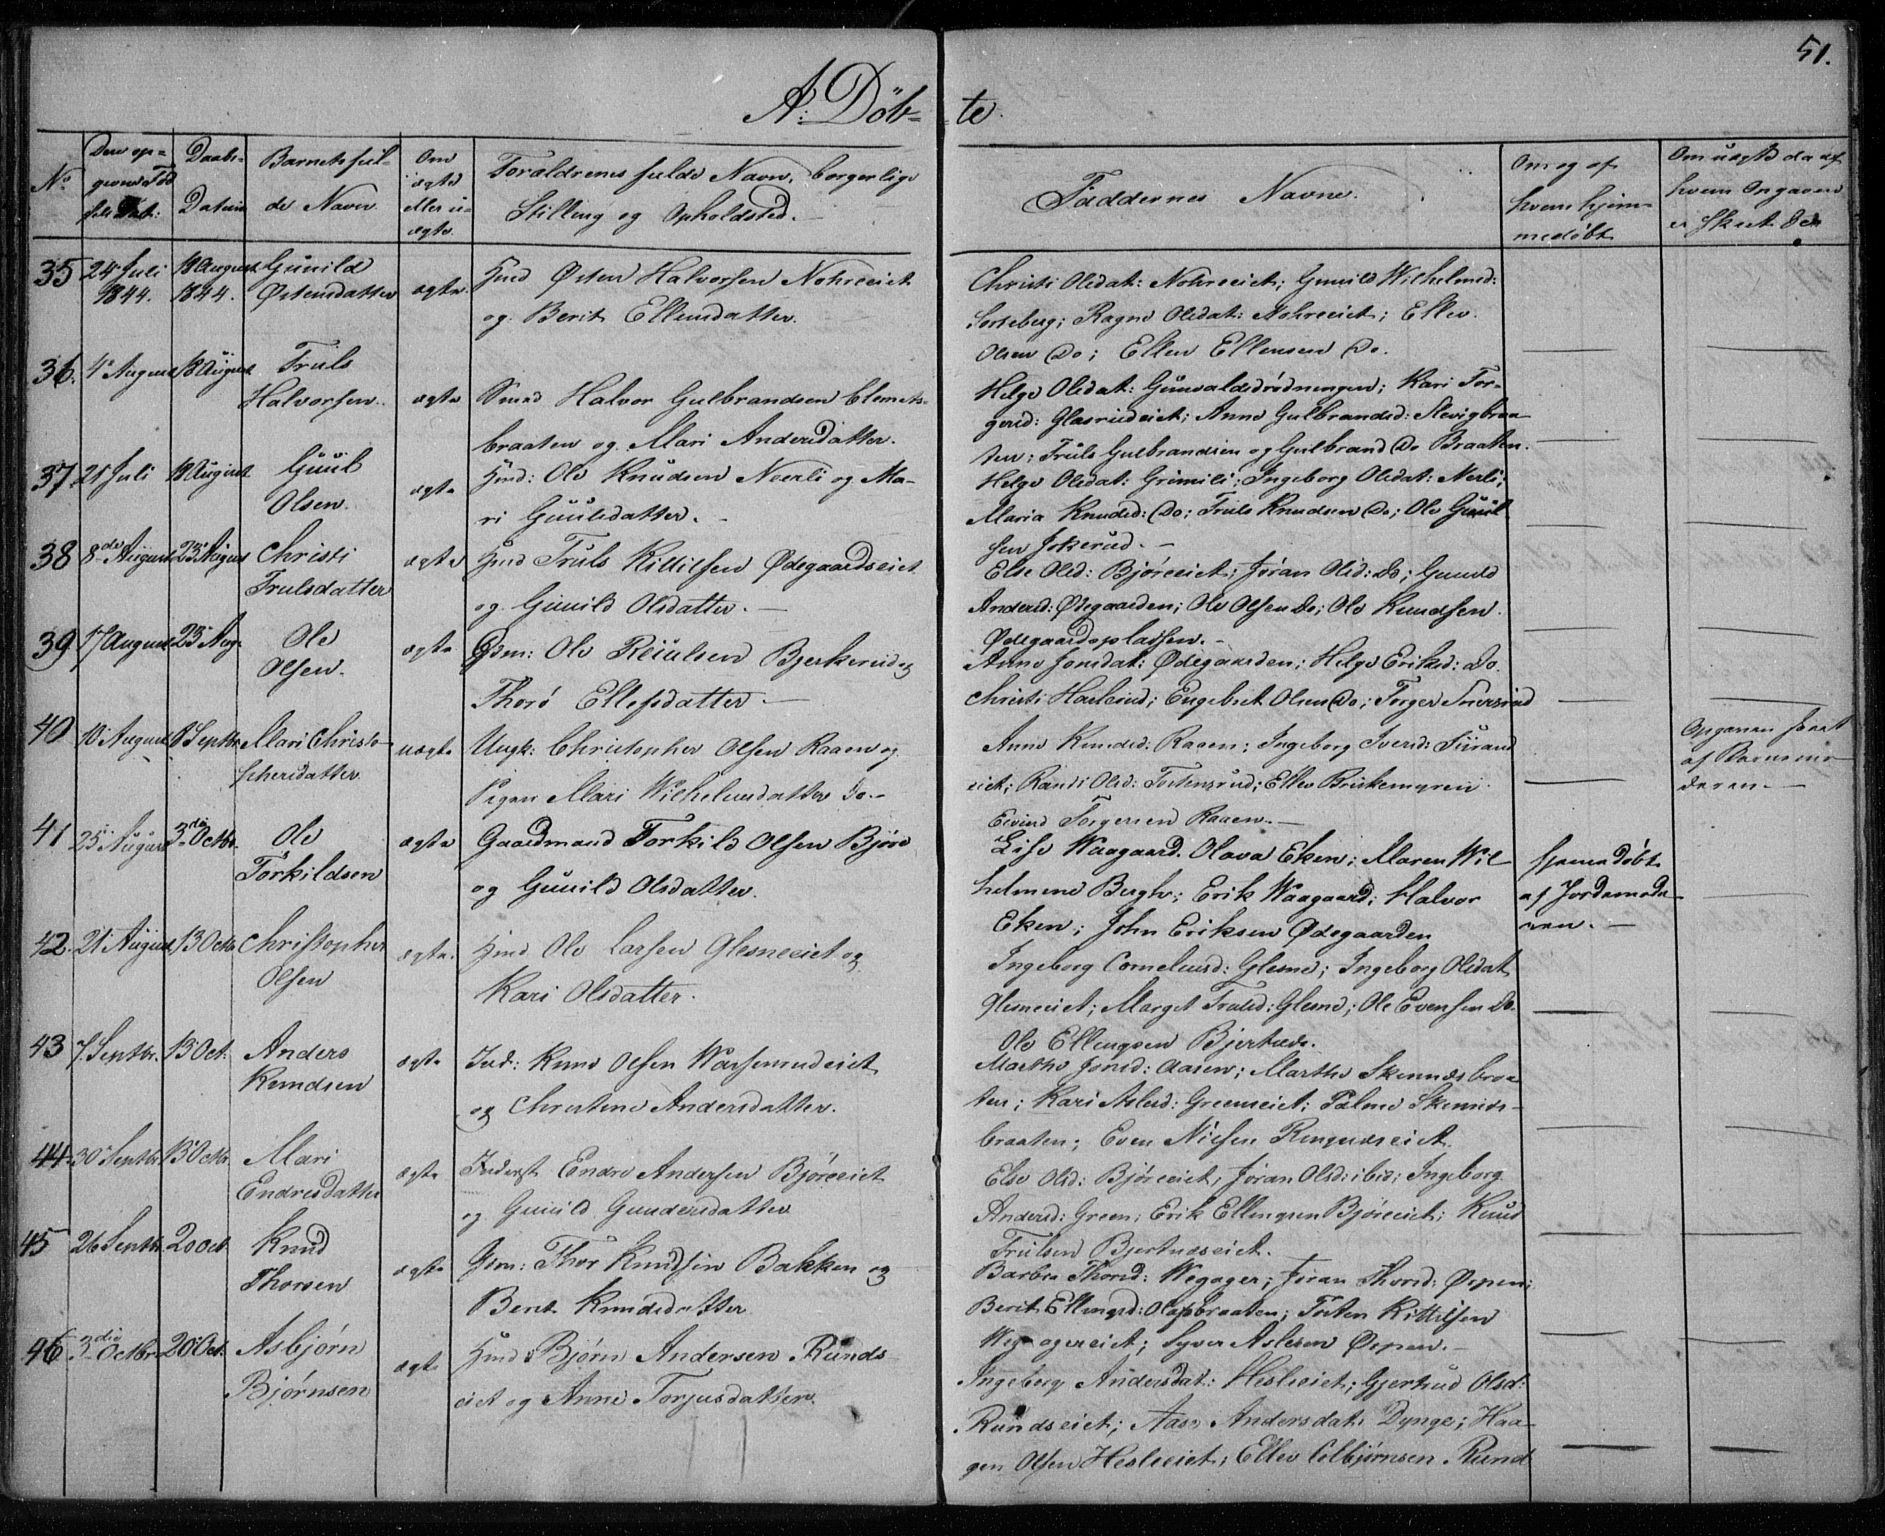 51.
A. Döb-
te.
No
Daabs-
Datum
Barnets ful-
de Navn
Om
ægte
eller u-
ægte
Forældrenes fulde Navn, borgerlige
Stilling og Opholdsted.
Faddernes Navne.
Om og af
hvem hjem-
medøbt
35
24 Juli
1844.
18 August
1844.
Gunild
Østensdatter
ægte.
Hmd Østen Halvorsen Nohreeiet
og Berit Ellensdatter.
Christi Olsdat: Nohreeiet; Gunild Wilhelmsd:
Sorteberg; Ragne Olsdat: Nohreeiet; Ellev
Olsen Do; Ellen Ellensen Do.
36.
4 August
18 August
Truls
Halvorsen.
ægte
Smed Halvor Gulbrandsen Clemets-
braaten og Mari Andersdatter.
Helge Olsdat: Gunvaldsrødningen; Kari Tor-
gersd: Glasrudeiet; Anne Gulbrandsd: Slevigbraa-
ten; Truls Gulbrandsen og Gulbrand Do Braaten.
37
21 Juli
18 August
Guul
Olsen.
ægte
Hmd: Ole Knudsen Neerli og Ma-
ri Guulsdatter.
Helge Olsdat: Grimili; Ingeborg Olsdat: Nerli;
Maria Knudsd: Do; Truls Knudsen Do; Ole Guul-
sen Jokerud.
38
8de August
23 August
Christi
Trulsdatter
ægte
Hmd Truls Kittilsen Ødegaardseiet
og Gunild Olsdatter.
Else Olsd: Bjøreeiet; Jøran Olsd: Do; Gunild
Andersd: Ødegaarden; Ole Olsen Do; Ole Knudsen
Ødegaardspladsen.
39
17 August
23 Aug.
Ole
Olsen.
ægte
Gsm: Ole Reiulsen Bjerkerud og
Thorø Ellefsdatter.
Anne Jonsdat: Ødegaarden; Helge Eriksd: Do.
Christi Haslerud; Engebret Olsen Do; Torger
40
10 August
8 Septbr
Mari Christo-
phersdatter
uægte
Ungk: Christopher Olsen Raaen og
Pigen Mari Wilhelmsdatter Do.
Anne Knudsd: Raaen; Ingeborg Iversd:
eiet; Randi Olsd: ; Ellev
Eivind Torgersen Raaen.
Opgaven skeet
af Barnemo-
deren.
41
25 August
3die Octbr.
Ole
Torkildsen
ægte
Gaardmand Torkild Olsen Bjøre
og Gunild Olsdatter.
Lise Waagaard. Olava Eken; Maren Wil-
helmine Bergh; Erik Waagaard; Halvor
Eken; John Eriksen Ødegaarden
hjemedøbt
af Jordemode-
ren.
42.
21 August
13 Octbr
Christopher
Olsen
ægte.
Hmd Ole Larsen Glesneeiet og
Kari Olsdatter.
Ingeborg Corneliusd: Glesne; Ingeborg Olsdat
Glesneeiet; Marget Trulsd: Glesne; Ole Evensen Do.
Ole Ellingsen Bjertnæs.
43
7 Septbr.
13 Oct:
Anders
Knudsen
ægte
Ind: Knud Olsen Warsemrudeiet
og Christine Andersdatter.
Marthe Jonsd: Aasen; Marthe Skinnesbraa-
ten; Kari Aslesd: Greeneeiet; Palme Skinnes-
braaten; Even Nielsen Ringnæseiet.
44.
30 Septbr
13 Octbr
Mari
Endresdatter
ægte
Inderst Endre Andersen Bjøreeiet
og Gunild Gundersdatter
Else Olsd: Bjøreeiet; Jøran Olsd: ibid; Ingeborg
Andersd: Green; Erik Ellingsen Bjøreeiet; Knud
Trulsen Bjertnæseiet.
45
26 Septbr.
20 Oct
Knud
Thorsen
ægte
Gsm: Thor Knudsen Bakken og
Berit Knudsdatter
Barbra Thorsd: Wegager; Jøran Thorsd: Ørpen;
Berit Ellingsd: Olasbraaten; Tosten Kittilsen
Wegagereiet; Syver Aslesen Ørpen.
46
3die Octbr
20 Oct.
Asbjørn
Bjørnsen
ægte
Hmd: Bjørn Andersen Runds-
eiet og Anne Torjusdatter.
Ingeborg Andersdat: Hesleeiet; Gjertrud Olsd:
Rundseiet; Aase Andersdat: Dynge; Haa-
gen Olsen Hesleeiet; Ellev Colbjørnsen Rund